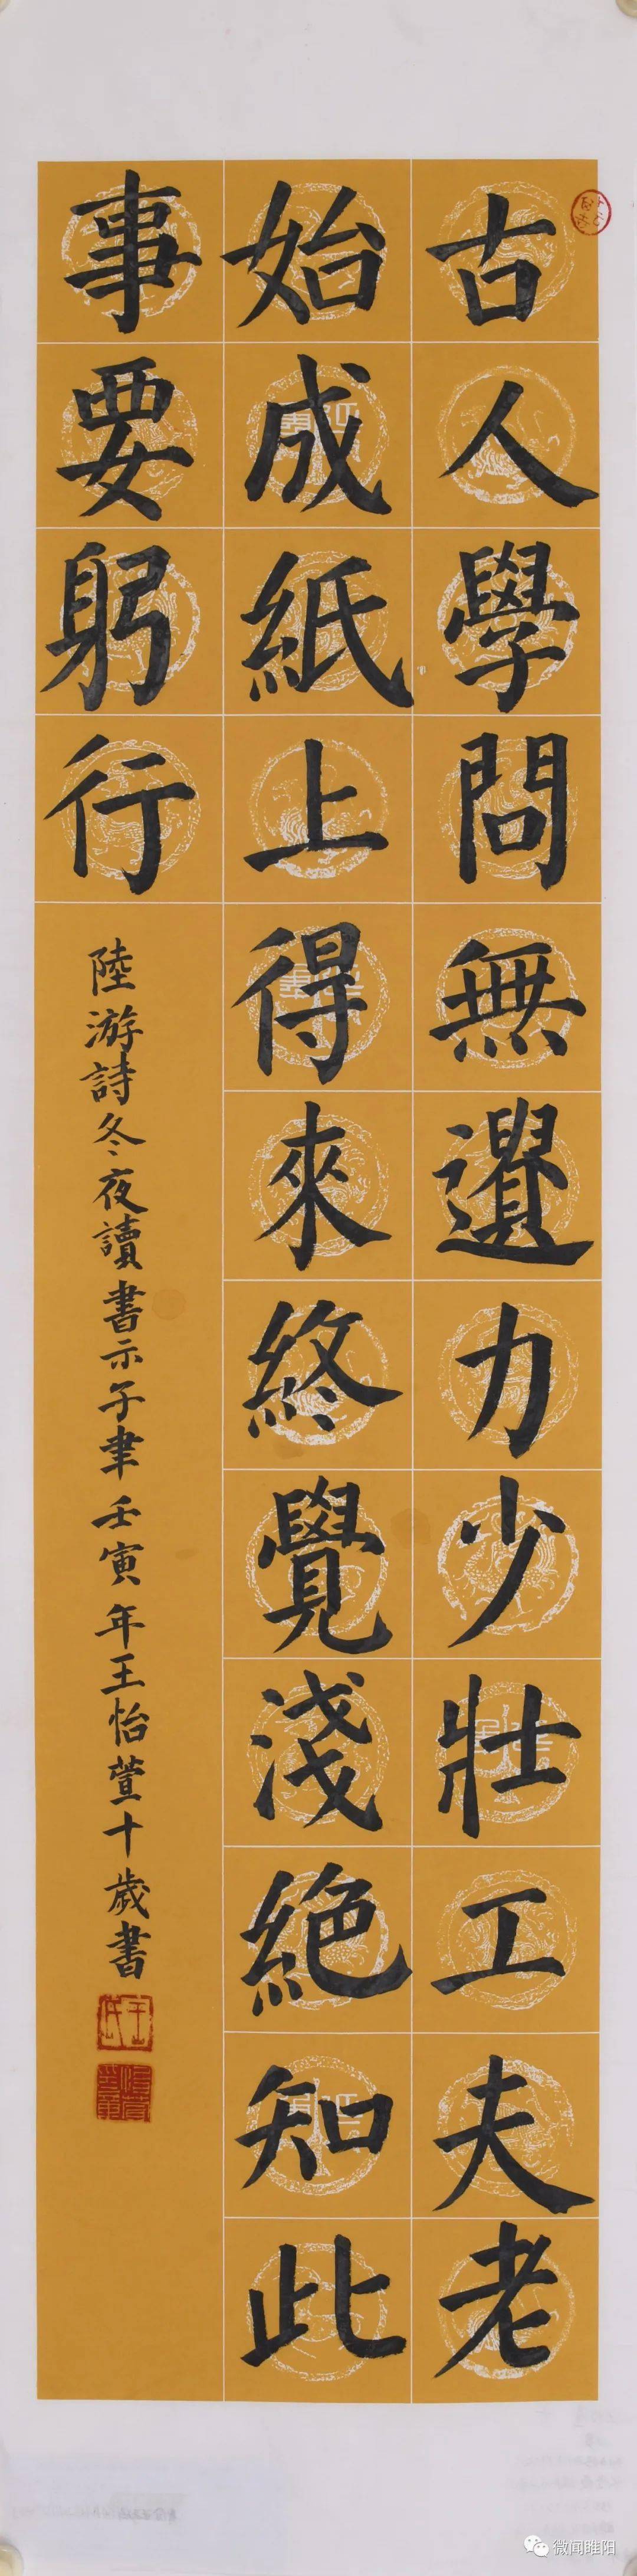 古人學問無遺力少壯工夫老
始成紙上得來終覺淺絕知此
事要躬行
陸游詩冬夜讀書示子聿壬寅年王怡萱十歲書
王氏
微闻睢阳